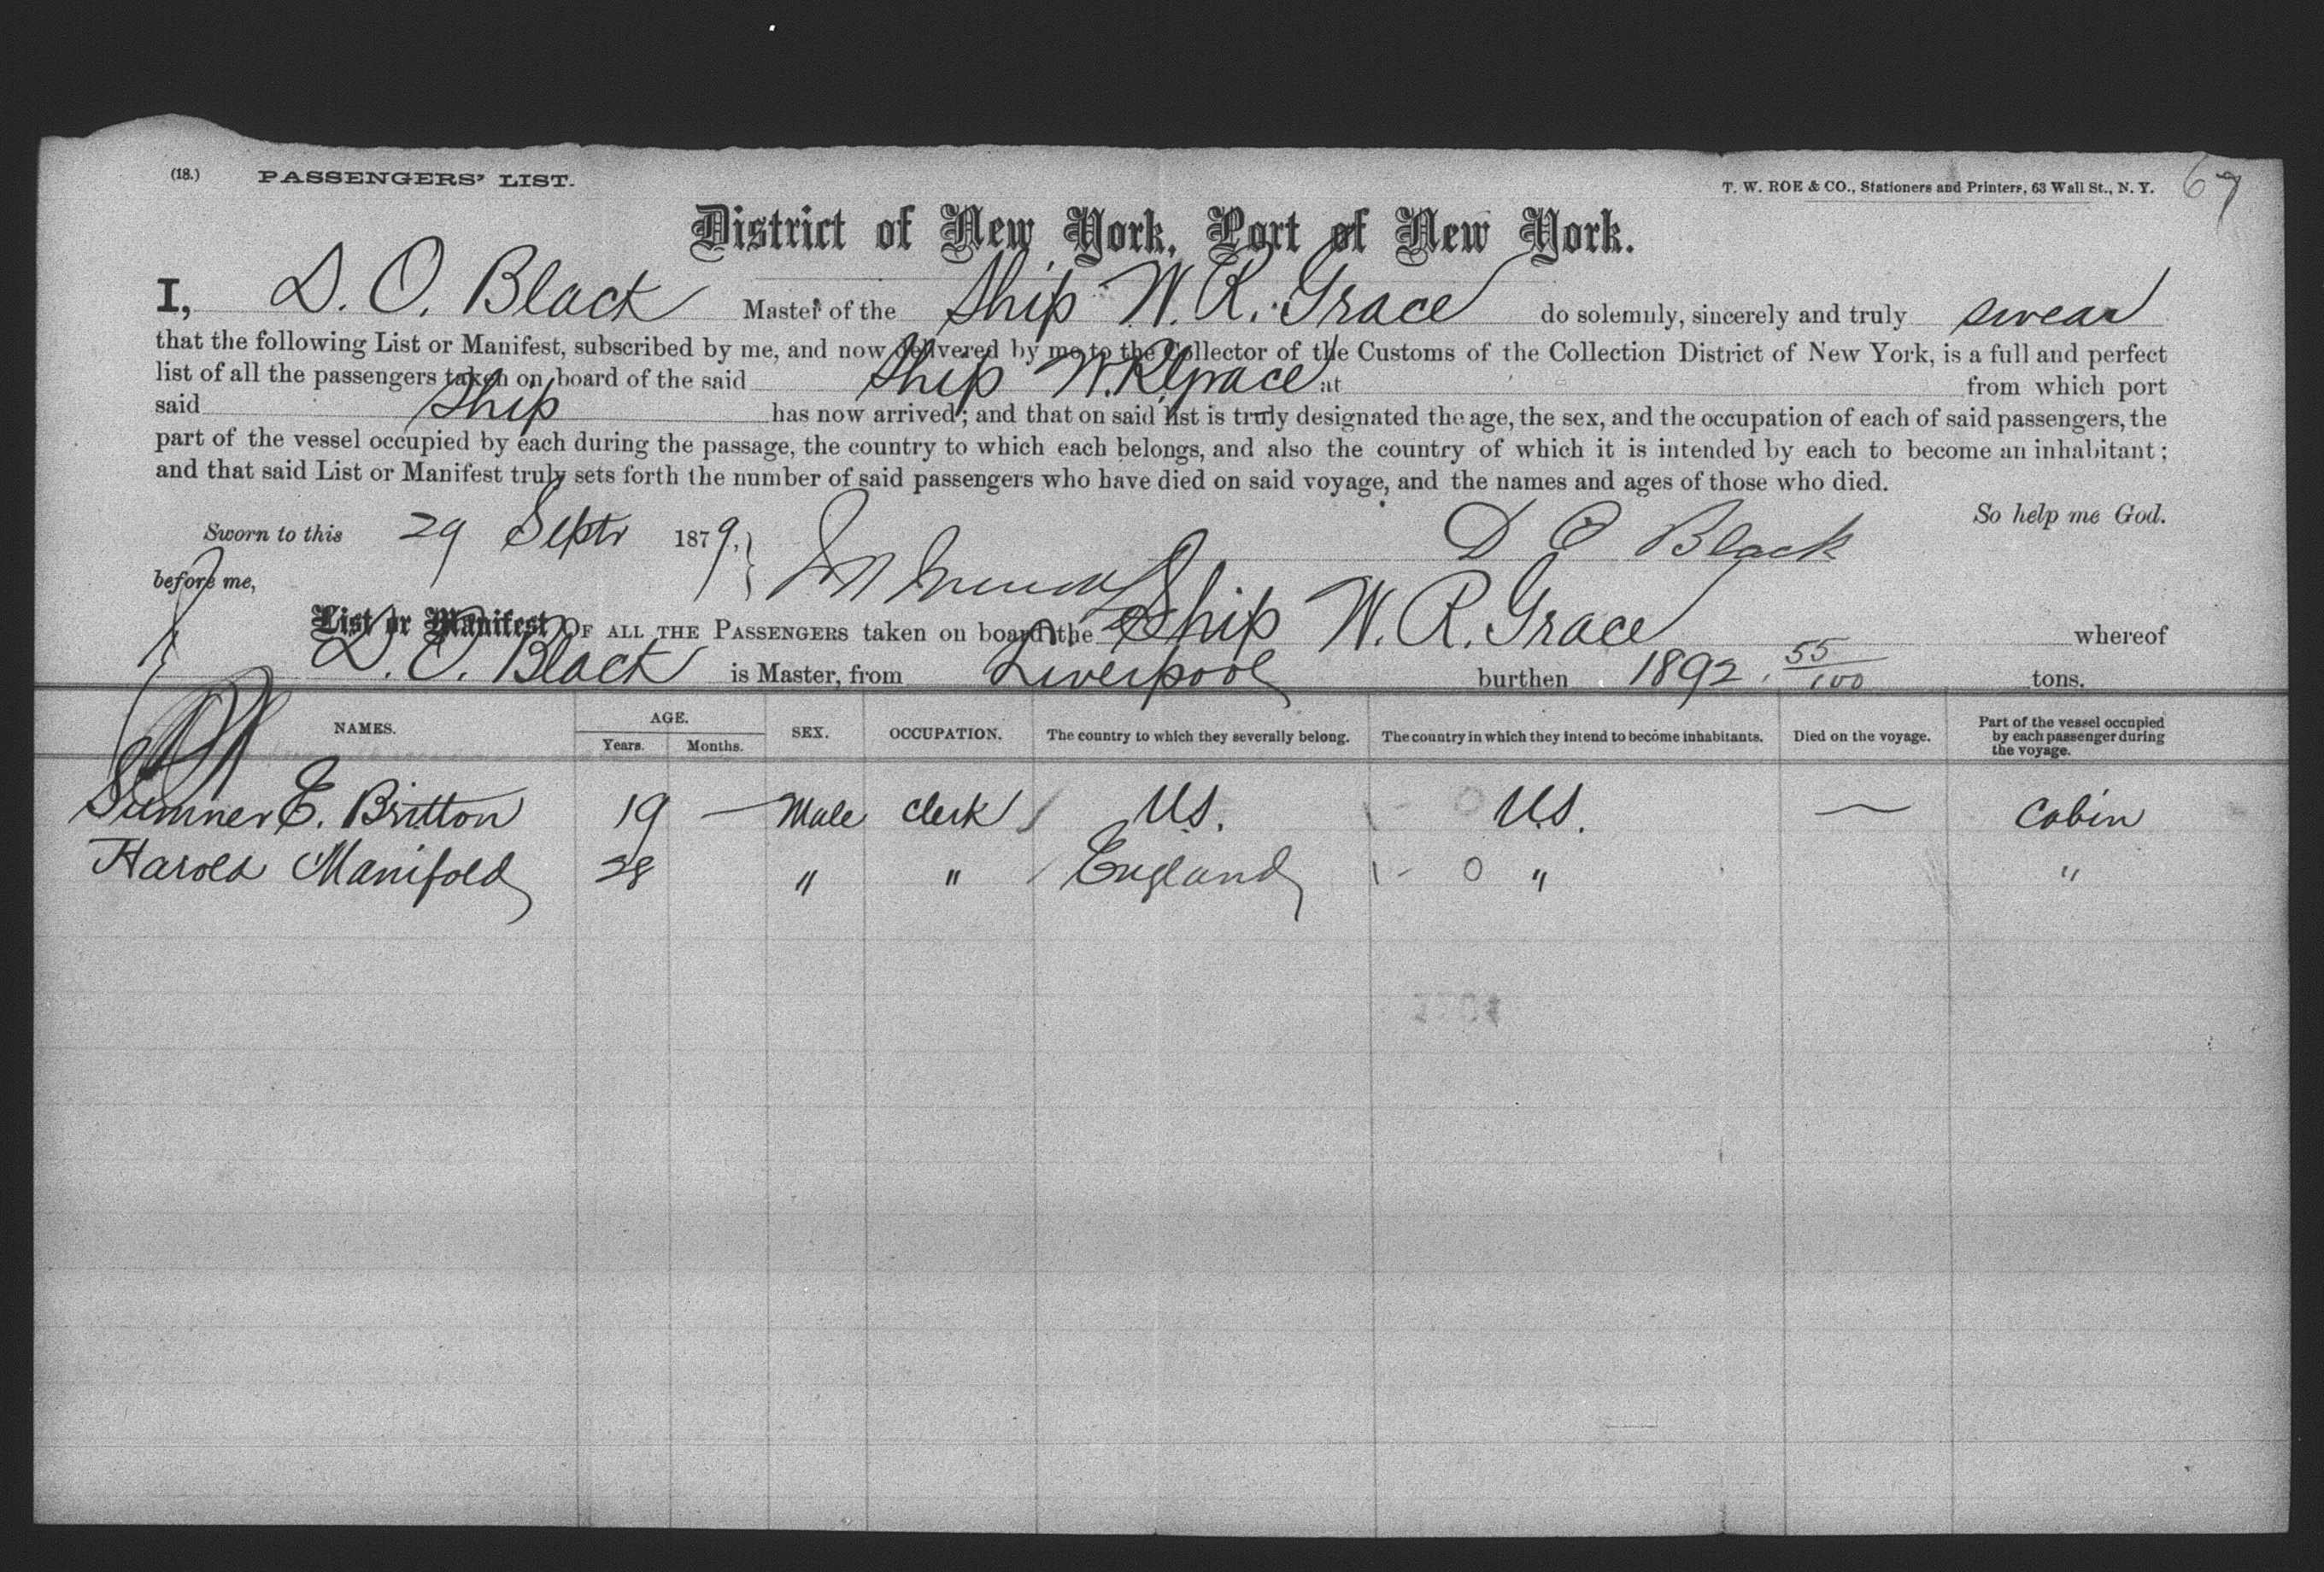 (18.) PASSENGERS' LIST. T. W. ROE & CO., Stationers and Printers, 63 Wall St., N. Y. 67
District of New York, Port of New York.
I, D. O. Black Master of the Ship W. R. Grace do solemnly, sincerely and truly swear
that the following List or Manifest, subscribed by me, and now delivered by me to the Collector of the Customs of the Collection District of New York, is a full and perfect
list of all the passengers taken on board of the said Ship W. R. Grace at from which port
said Ship has now arrived; and that on said list is truly designated the age, the sex, and the occupation of each of said passengers, the
part of the vessel occupied by each during the passage, the country to which each belongs, and also the country of which it is intended by each to become an inhabitant;
and that said List or Manifest truly sets forth the number of said passengers who have died on said voyage, and the names and ages of those who died.
So help me God.
Sworn to this 29 Septr 1879, D O Black
before me,
List or Manifest OF ALL THE PASSENGERS taken on board the Ship W. R. Grace whereof
D. O. Black is Master, from Liverpool burthen 1892. 55/100 tons.
NAMES. AGE. Years. Months. SEX. OCCUPATION. The country to which they severally belong. The country in which they intend to become inhabitants. Died on the voyage. Part of the vessel occupied by each passenger during the voyage.
Sumner E. Britton 19 — Male Clerk U.S. 1 - 0 U.S. — Cabin
Harold Manifold 28 " " England 1 - 0 " "